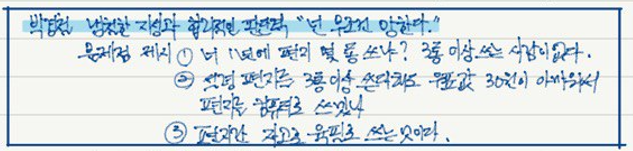 박경철 냉철한 지성과 합리적인 판단력 "넌 무조건 망한다."
문제점 제시 ① 너 1년에 편지 몇 통 쓰냐? 3통 이상 쓰는 사람이 없다.
② 설령 편지를 3통이상 쓴다쳐도 우표값 30원이 아까워서
편지를 컴퓨터로 쓰겠냐
③ 편지란 자고로 육필로 쓰는 맛이다.